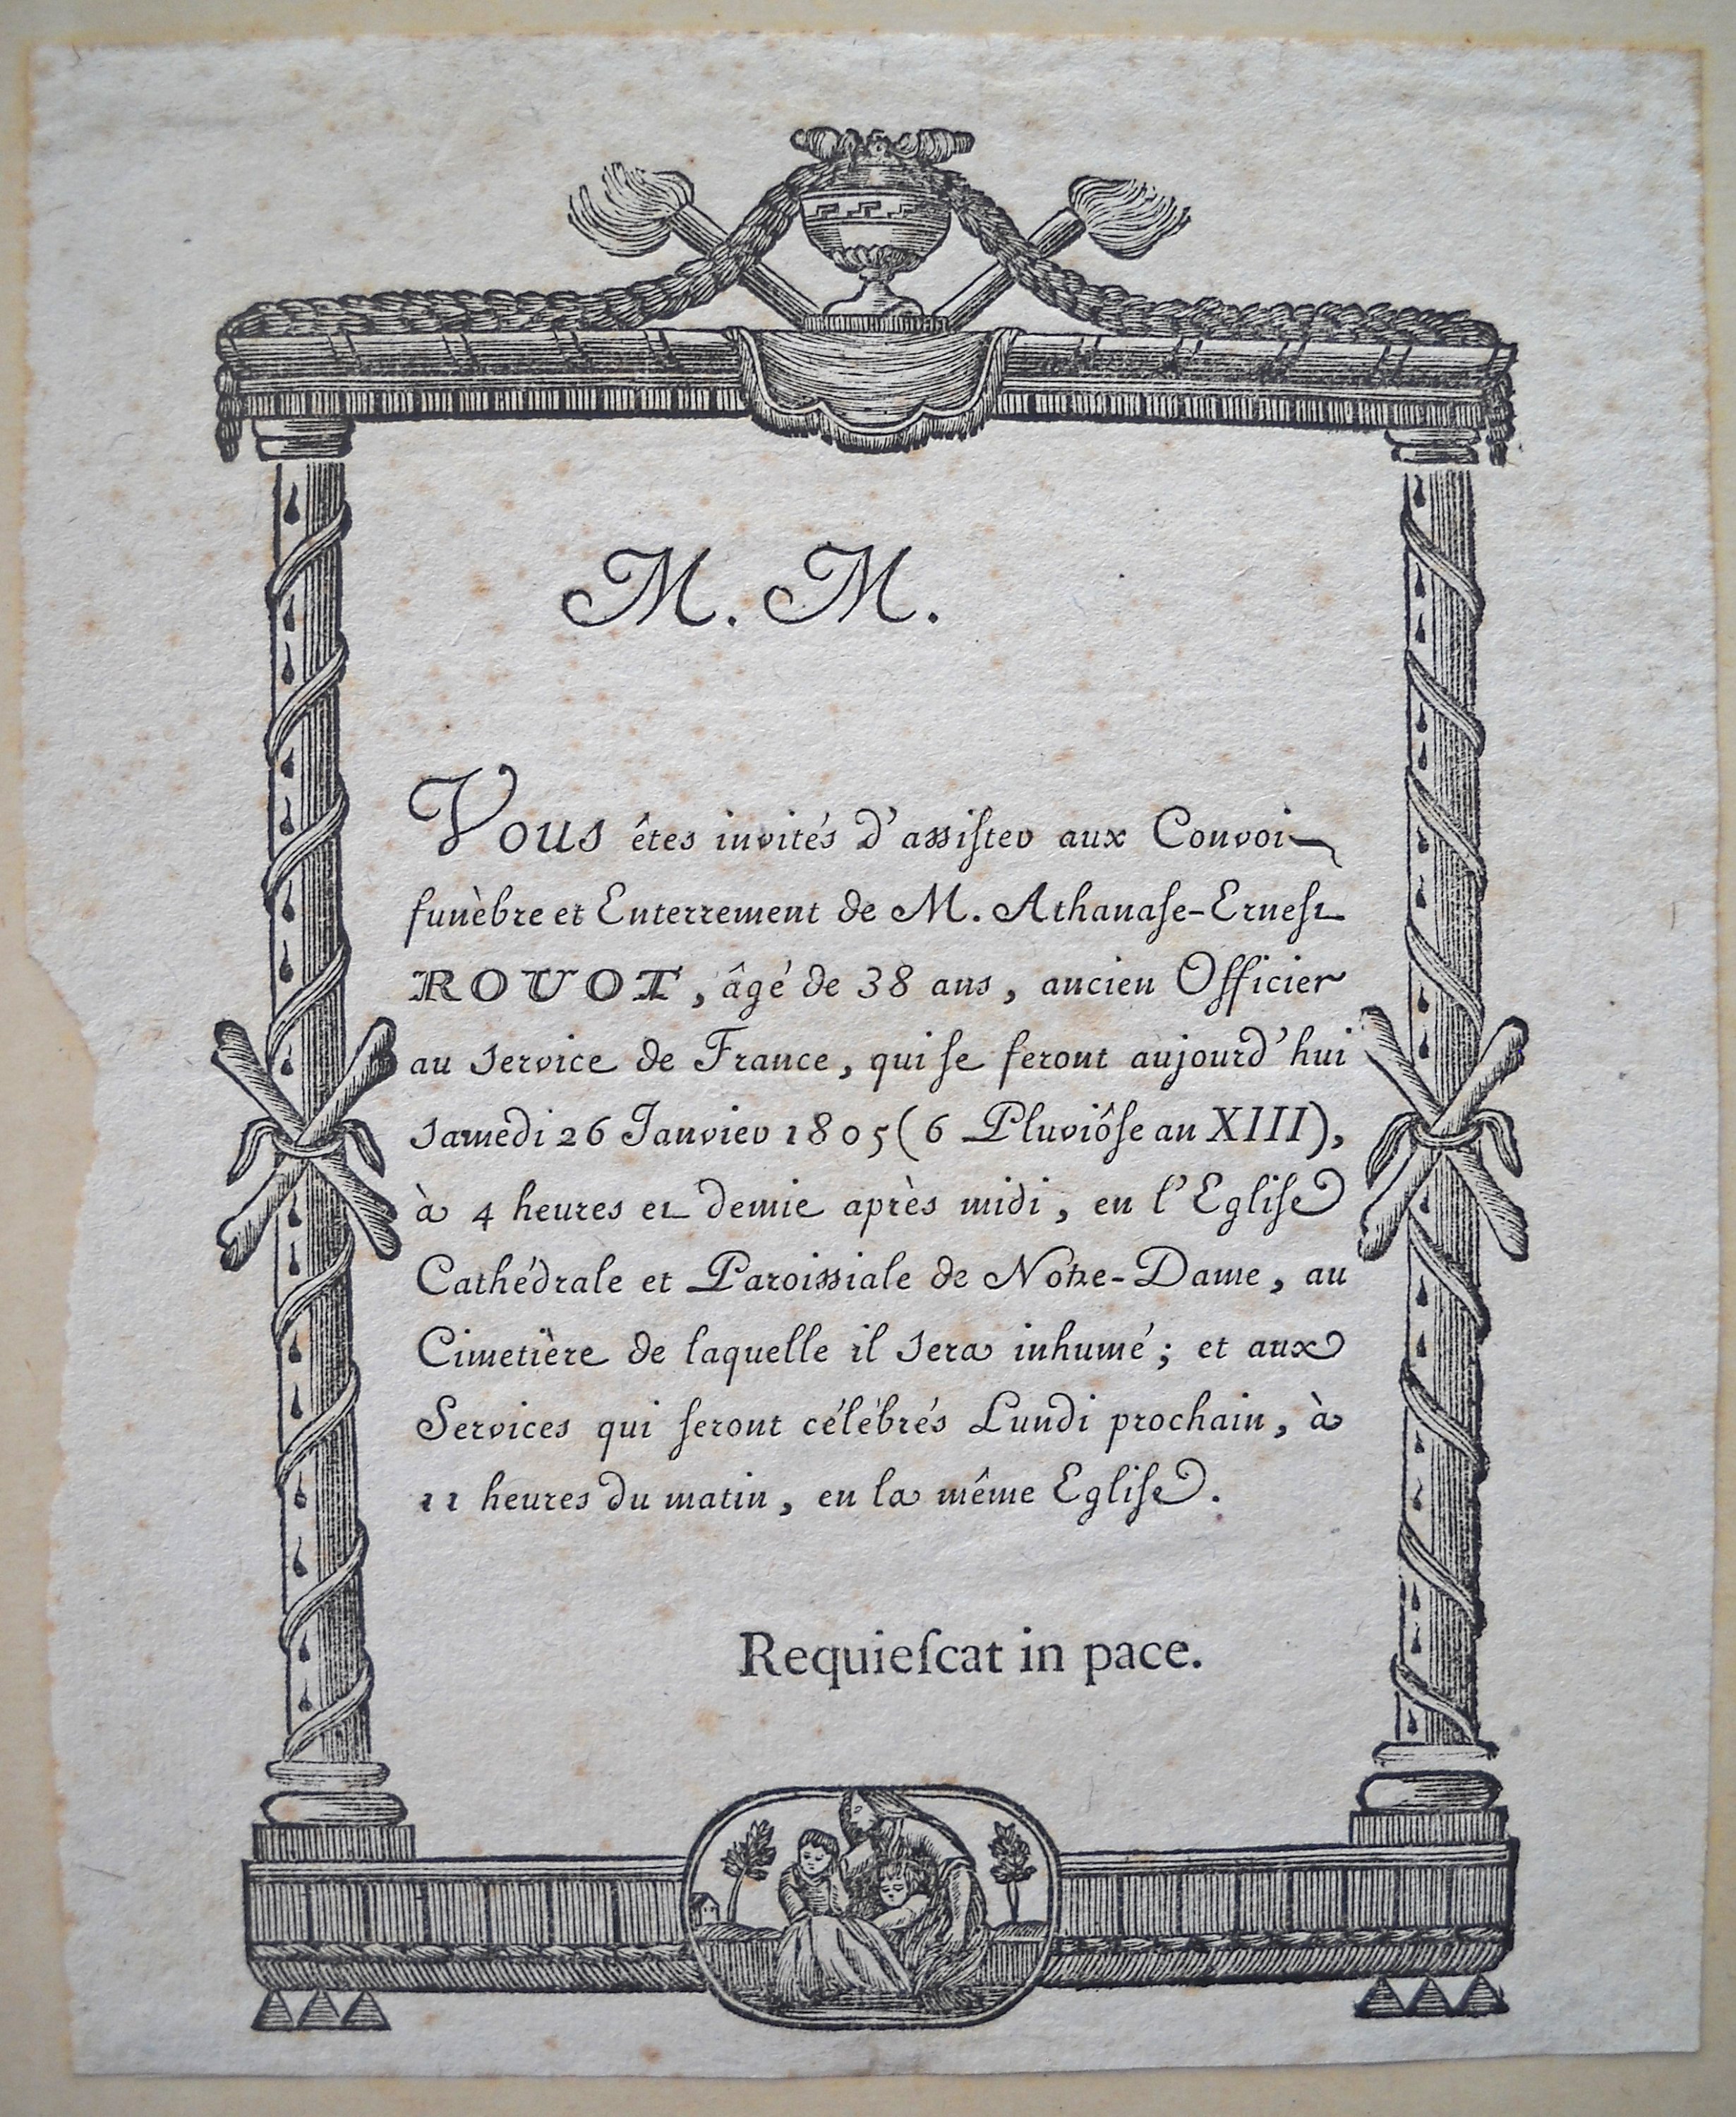 M. M.
Vous êtes invités d'assiſter aux Convoi
funèbre et Enterrement de M. Athanaſe-Erneſt
ROUOT, âgé de 38 ans, ancien Officier
au service de France, qui ſe feront aujourd'hui
samedi 26 Janvier 1805 (6 Pluviôſe an XIII),
à 4 heures et demie après midi, en l'Egliſe
Cathédrale et Paroissiale de Notre-Dame, au
Cimetière de laquelle il sera inhumé; et aux
Services qui ſeront célébrés Lundi prochain, à
11 heures du matin, en la même Egliſe.
Requieſcat in pace.